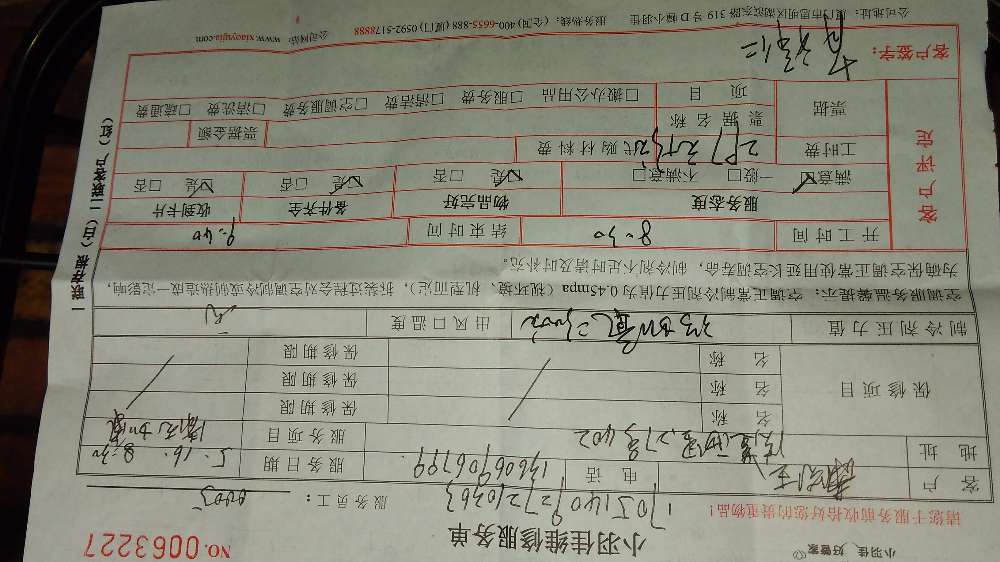 小羽佳 好管家
小羽佳维修服务单
NO. 0063227
请您于服务前收拾好您的贵重物品！
服务员工：0003
客户 电话 13606906799 服务日期 5.16. 8:30
地址 27号402 服务项目 清洗加氟
保修项目
名称 保修期限
名称 保修期限
名称 保修期限
制冷剂压力值 出风口温度
空调服务温馨提示：空调正常制冷剂压力值为0.45mpa（视环境、机型而定），拆装过程会对空调制冷或制热造成一定影响，
为确保空调正常使用延长空调寿命，制冷剂不足时请及时补充。
客户评定
开工时间 8:30 结束时间 9:40
服务态度 物品完好 备件齐全 收到卡片
满意☑ 一般□ 不满意□ ☑是 □否 ☑是 □否 ☑是 □否
工时费 代购材料费
票据 票据名称 票据金额
项目 □搬办公用品 □服务费 □清洁费 □空调服务费 □清洗费 □疏通费
客户签字：
公司地址：厦门市思明区湖滨东路319号D幢小羽佳 服务热线：(全国) 400-6655-888 (厦门) 0592-5178888 公司网站：www.xiaoyujia.com
一联存根（白）二联客户（红）